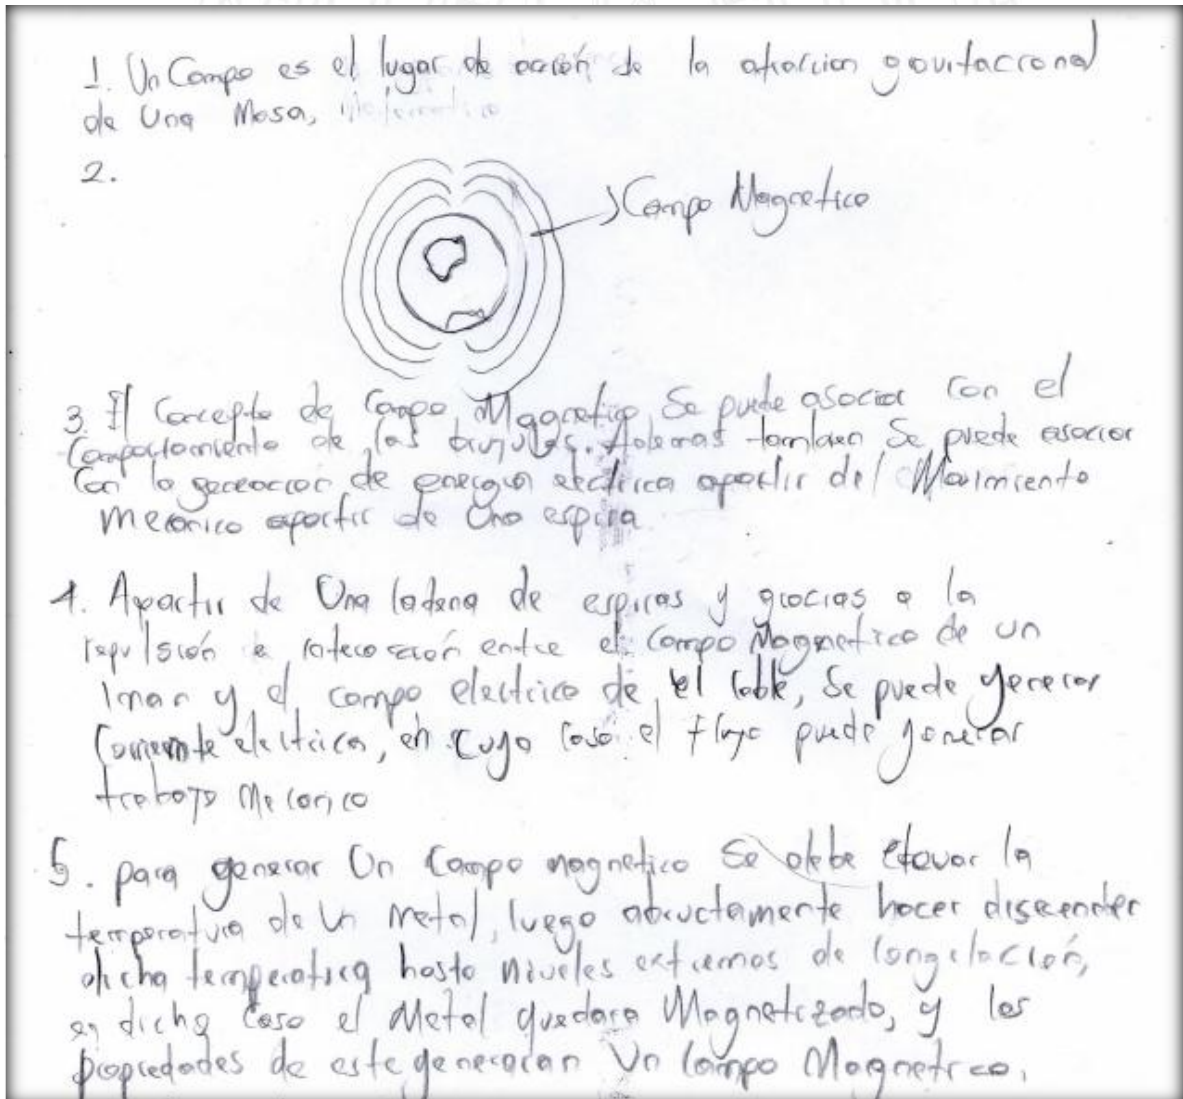 1. Un Campo es el lugar de acción de la atraccion gravitacional
de Una Masa,
2.
Campo Magnetico
3. El Concepto de Campo Magnetico Se puede asociar con el
Comportamiento de las brujulas. Ademas tambien Se puede asociar
Con la generacion de energia electrica apartir del Movimiento
Mecanico apartir de Una espira
4. Apartir de Una Cadena de espiras y gracias a la
repulsión e interacción entre el Campo Magnetico de un
Iman y el campo electrico de el Cable, Se puede generar
Corriente electrica, en cuyo Caso el flujo puede generar
trabajo Mecanico
5. para generar Un Campo magnetico Se debe elevar la
temperatura de Un metal, luego abructamente hacer discender
dicha temperatura hasta niveles extremos de Congelación,
en dicho Caso el Metal quedara Magnetizado, y las
propiedades de este generaran Un Campo Magnetico.